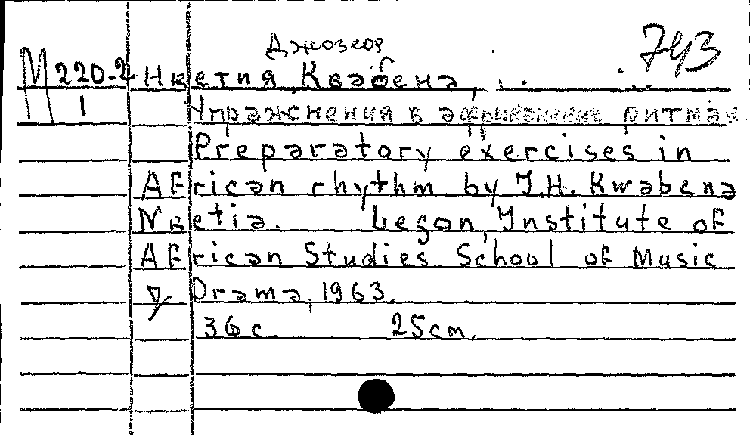 Джозеф 743
М 220-2 Нкетия, Квабена,
1 Упражнения в африканских ритмах
Preparatory exercises in
African rhythm by J.H. Kwabena
Nketia. Legon, Institute of
African Studies School of Music
& Drama, 1963.
36 с 25 cm.